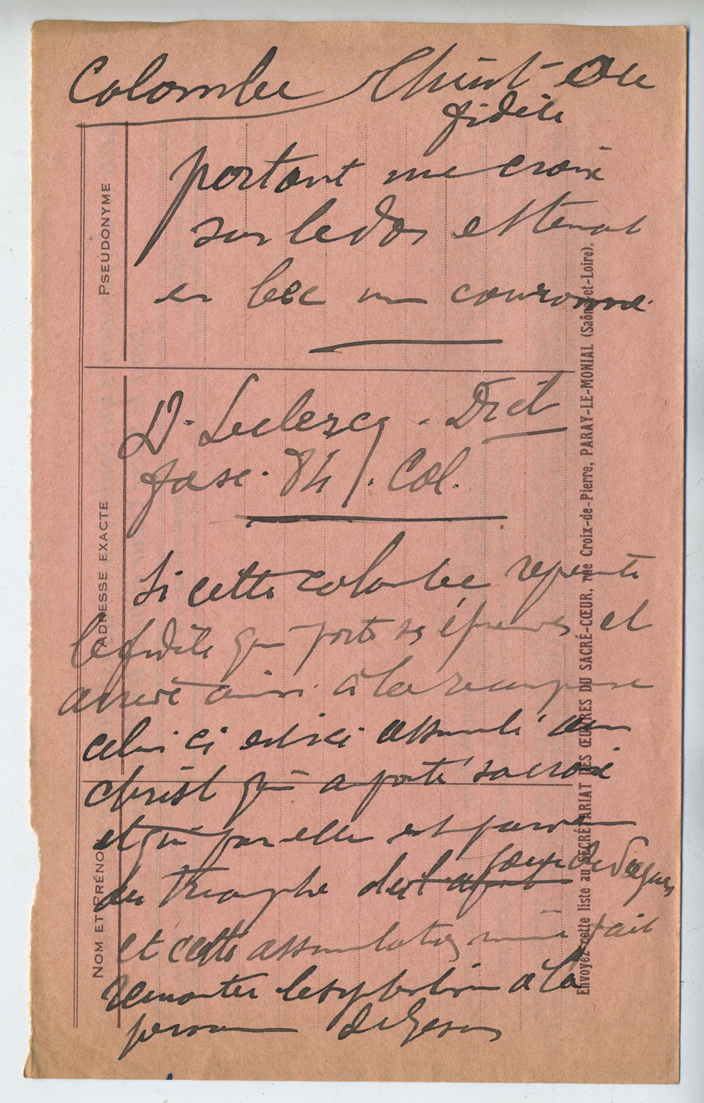 Colombe Christ - ou
fidèle
portant une croix
sur le dos et tenant
en bec une couronne
D. Leclercq. Dict
fasc. 84/. Col.
Si cette colombe représente
le fidèle qui porte ses épreuves et
arrive ainsi à la récompense
celui ci est ici assimilé au
Christ qui a porté sa croix
et qui par elle est parvenu
au triomphe
et cette assimilation même fait
remonter le symbolisme à la
personne de Jesus
PSEUDONYME
ADRESSE EXACTE
NOM ET PRÉNO
Envoyez cette liste au SECRÉTARIAT DES ŒUVRES DU SACRÉ-CŒUR, rue Croix-de-Pierre, PARAY-LE-MONIAL (Saône-et-Loire).